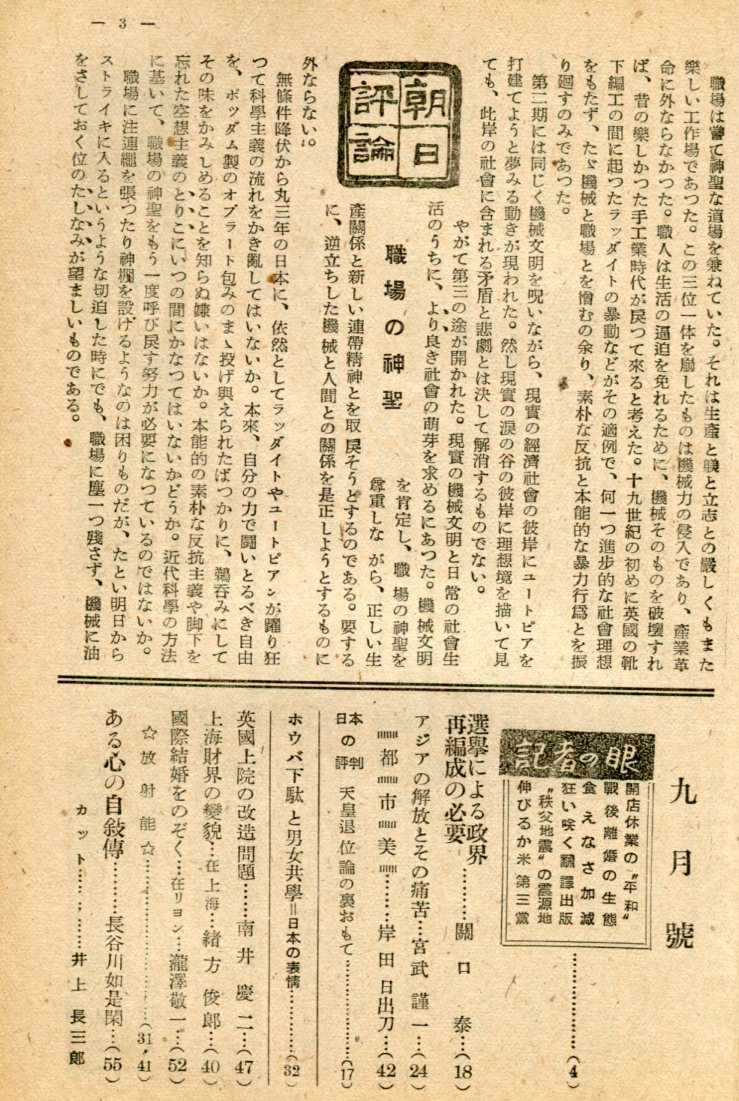 — 3 —
職場は嘗て神聖な道場を兼ねていた。それは生産と躾と立志との嚴しくもまた
樂しい工作場であつた。この三位一体を崩したものは機械力の侵入であり、産業革
命に外ならなかつた。職人は生活の逼迫を免れるために、機械そのものを破壞すれ
ば、昔の樂しかつた手工業時代が戻つて來ると考えた。十九世紀の初めに英國の靴
下編工の間に起つたラッダイトの暴動などがその適例で、何一つ進歩的な社會理想
をもたず、たゞ機械と職場とを憎むの余り、素朴な反抗と本能的な暴力行爲とを振
り廻すのみであつた。
第二期には同じく機械文明を呪いながら、現實の經濟社會の彼岸にユートピアを
打建てようと夢みる動きが現われた。然し現實の涙の谷の彼岸に理想境を描いて見
ても、此岸の社會に含まれる矛盾と悲劇とは決して解消するものでない。
やがて第三の途が開かれた。現實の機械文明と日常の社會生
活のうちに、より良き社會の萌芽を求めるにあつた。機械文明
朝日
評論
職場の神聖
を肯定し、職場の神聖を
尊重しながら、正しい生
産關係と新しい連帶精神とを取戻そうとするのである。要する
に、逆立ちした機械と人間との關係を是正しようとするものに
外ならない。
無條件降伏から丸三年の日本に、依然としてラッダイトやユートピアンが躍り狂
つて科學主義の流れをかき亂してはいないか。本來、自分の力で闘いとるべき自由
を、ポッダム製のオブラート包みのまゝ投げ與えられたばつかりに、鵜呑みにして
その味をかみしめることを知らぬ嫌いはないか。本能的の素朴な反抗主義や脚下を
忘れた空想主義のとりこにいつの間にかなつてはいないかどうか。近代科學の方法
に基いて、職場の神聖をもう一度呼び戻す努力が必要になつているのではないか。
職場に注連繩を張つたり神棚を設けるようなのは困りものだが、たとい明日から
ストライキに入るというような切迫した時にでも、職場に塵一つ殘さず、機械に油
をさしておく位のたしなみが望ましいものである。
九月號
記者の眼
開店休業の〝平和〟
戰後離婚の生態
食えなさ加減
狂い咲く飜譯出版
〝秩父地震〟の震源地
伸びるか米第三黨
…………(4)
選擧による政界
再編成の必要………關口泰…(18)
アジアの解放とその痛苦…宮武謹一…(24)
都市美………岸田日出刀…(42)
日本の評判 天皇退位論の裏おもて…………(17)
ホウバ下駄と男女共學＝日本の表情…………(32)
英國上院の改造問題………南井慶二…(47)
上海財界の變貌…在上海…緒方俊郎…(40)
國際結婚をのぞく…在リヨン…瀧澤敬一…(52)
☆放射能☆…………(31,41)
ある心の自敍傳………長谷川如是閑…(55)
カット………井上長三郎